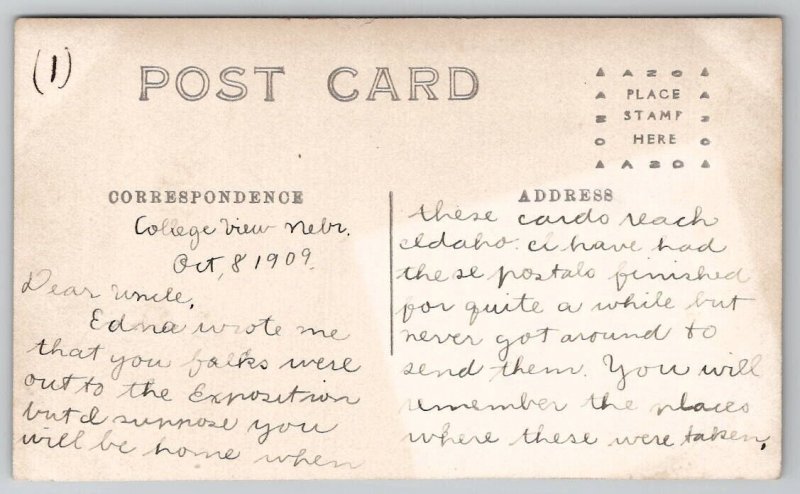 (1)
POST CARD
A Z O
PLACE
STAMP
HERE
A Z O
CORRESPONDENCE
College View Nebr.
Oct, 8 1909.
Dear Uncle,
Edna wrote me
that you folks were
out to the Exposition
but I suppose you
will be home when
ADDRESS
these cards reach
Idaho. I have had
these postals finished
for quite a while but
never got around to
send them. You will
remember the places
where these were taken.